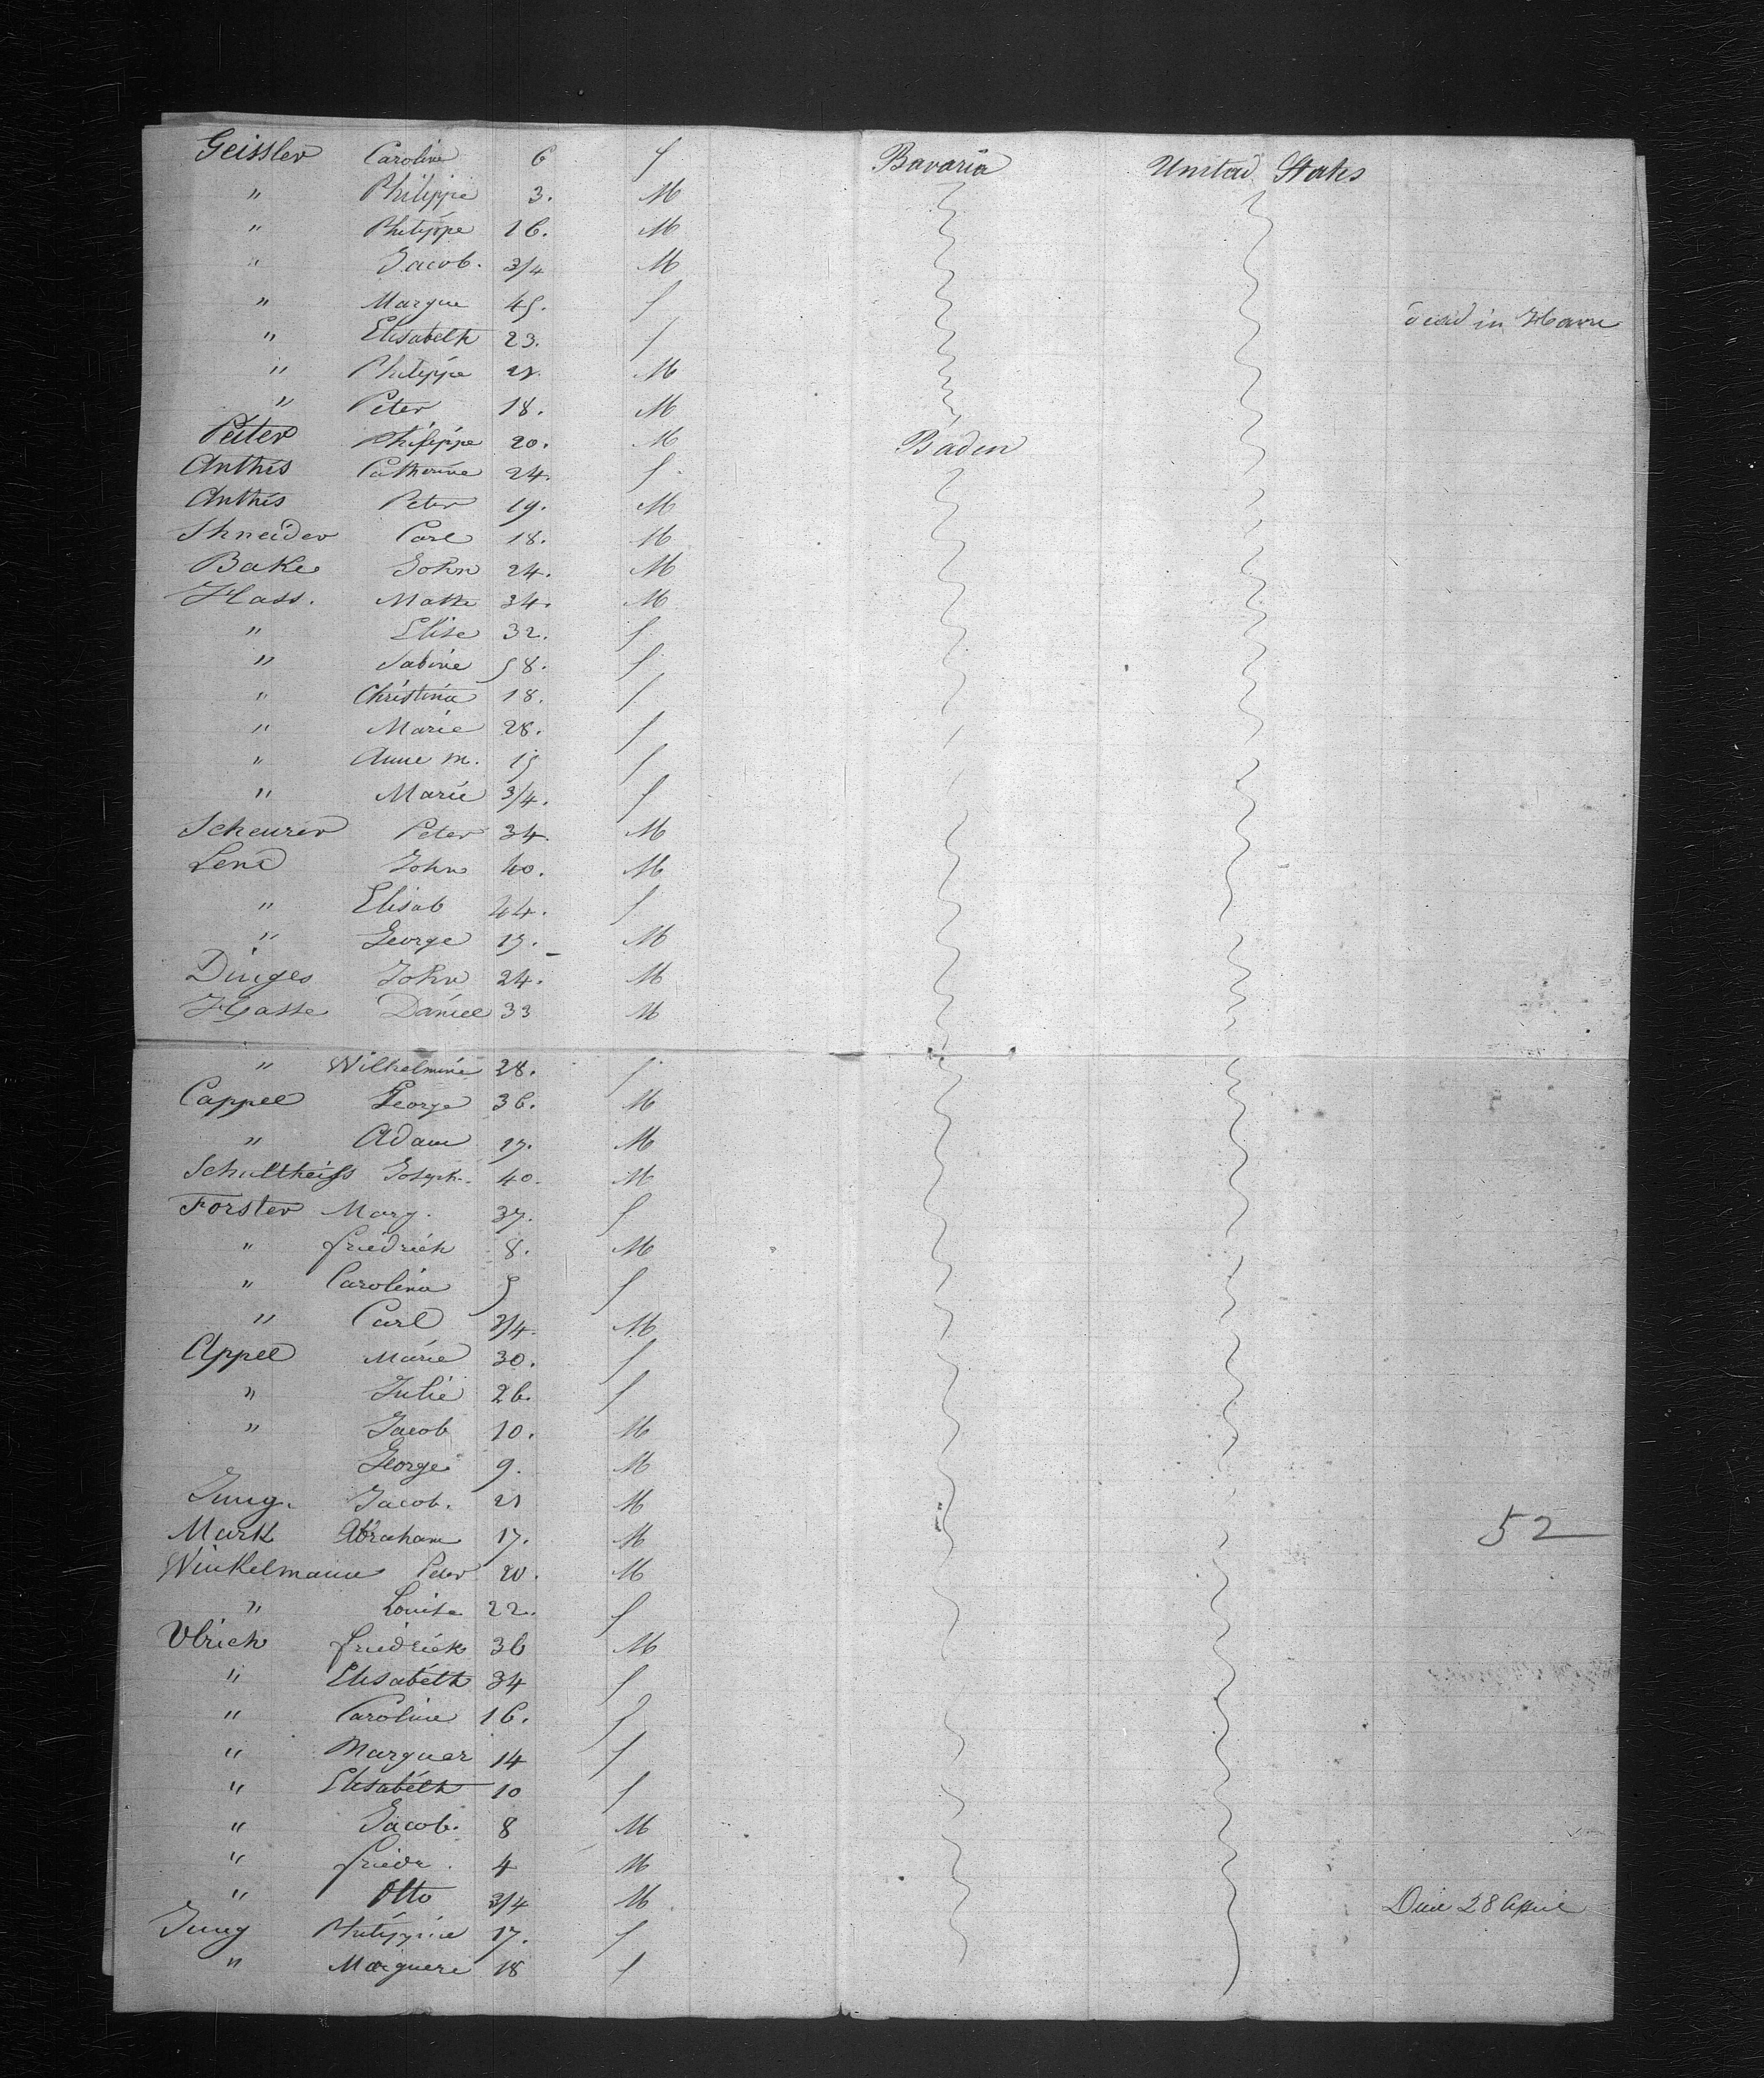 Geissler Caroline 6 f Bavaria United States
" Philippe 3. M
" Philippe 16. M
" Jacob. 3/4 M
" Margue 45. f dead in Havre
" Elisabeth 23. f
" Philippe 21. M
" Peter 18. M
Peiter Philippe 20. M Baden
Anthis Catherine 24. f
Anthis Peter 19. M
Shneider Carl 18. M
Bake John 24. M
Hass. Matte 34. M
" Elise 32. f
" Sabine 58. f
" Christina 18. f
" Marie 28. f
" Anne M. 15 f
" Marie 3/4. f
Scheurer Peter 34. M
Lend John 40. M
" Elisab 44. f
" George 17. M
Dinges John 24. M
Hasse Daniel 33 M
" Wilhelmine 28. f
Cappel George 36. M
" Adam 17. M
Schultheiss Joseph. 40. M
Forster Marg. 37. f
" friedrich 8. M
" Carolina 5 f
" Carl 3/4. M
Appel Marie 30. f
" Julie 26. f
" Jacob 10. M
George 9. M
Jung. Jacob. 21 M
Mark Abraham 17. M 52
Winkelmann Peter 20. M
" Louise 22. f
Ulrich friedrich 36 M
" Elisabeth 34 f
" Caroline 16. f
" Marguer 14 f
" Elisabeth 10 f
" Jacob. 8 M
" friedr. 4 M
" Otto 3/4 M. Died 28 April
Jung Philippine 17. f
" Marguere 18 f